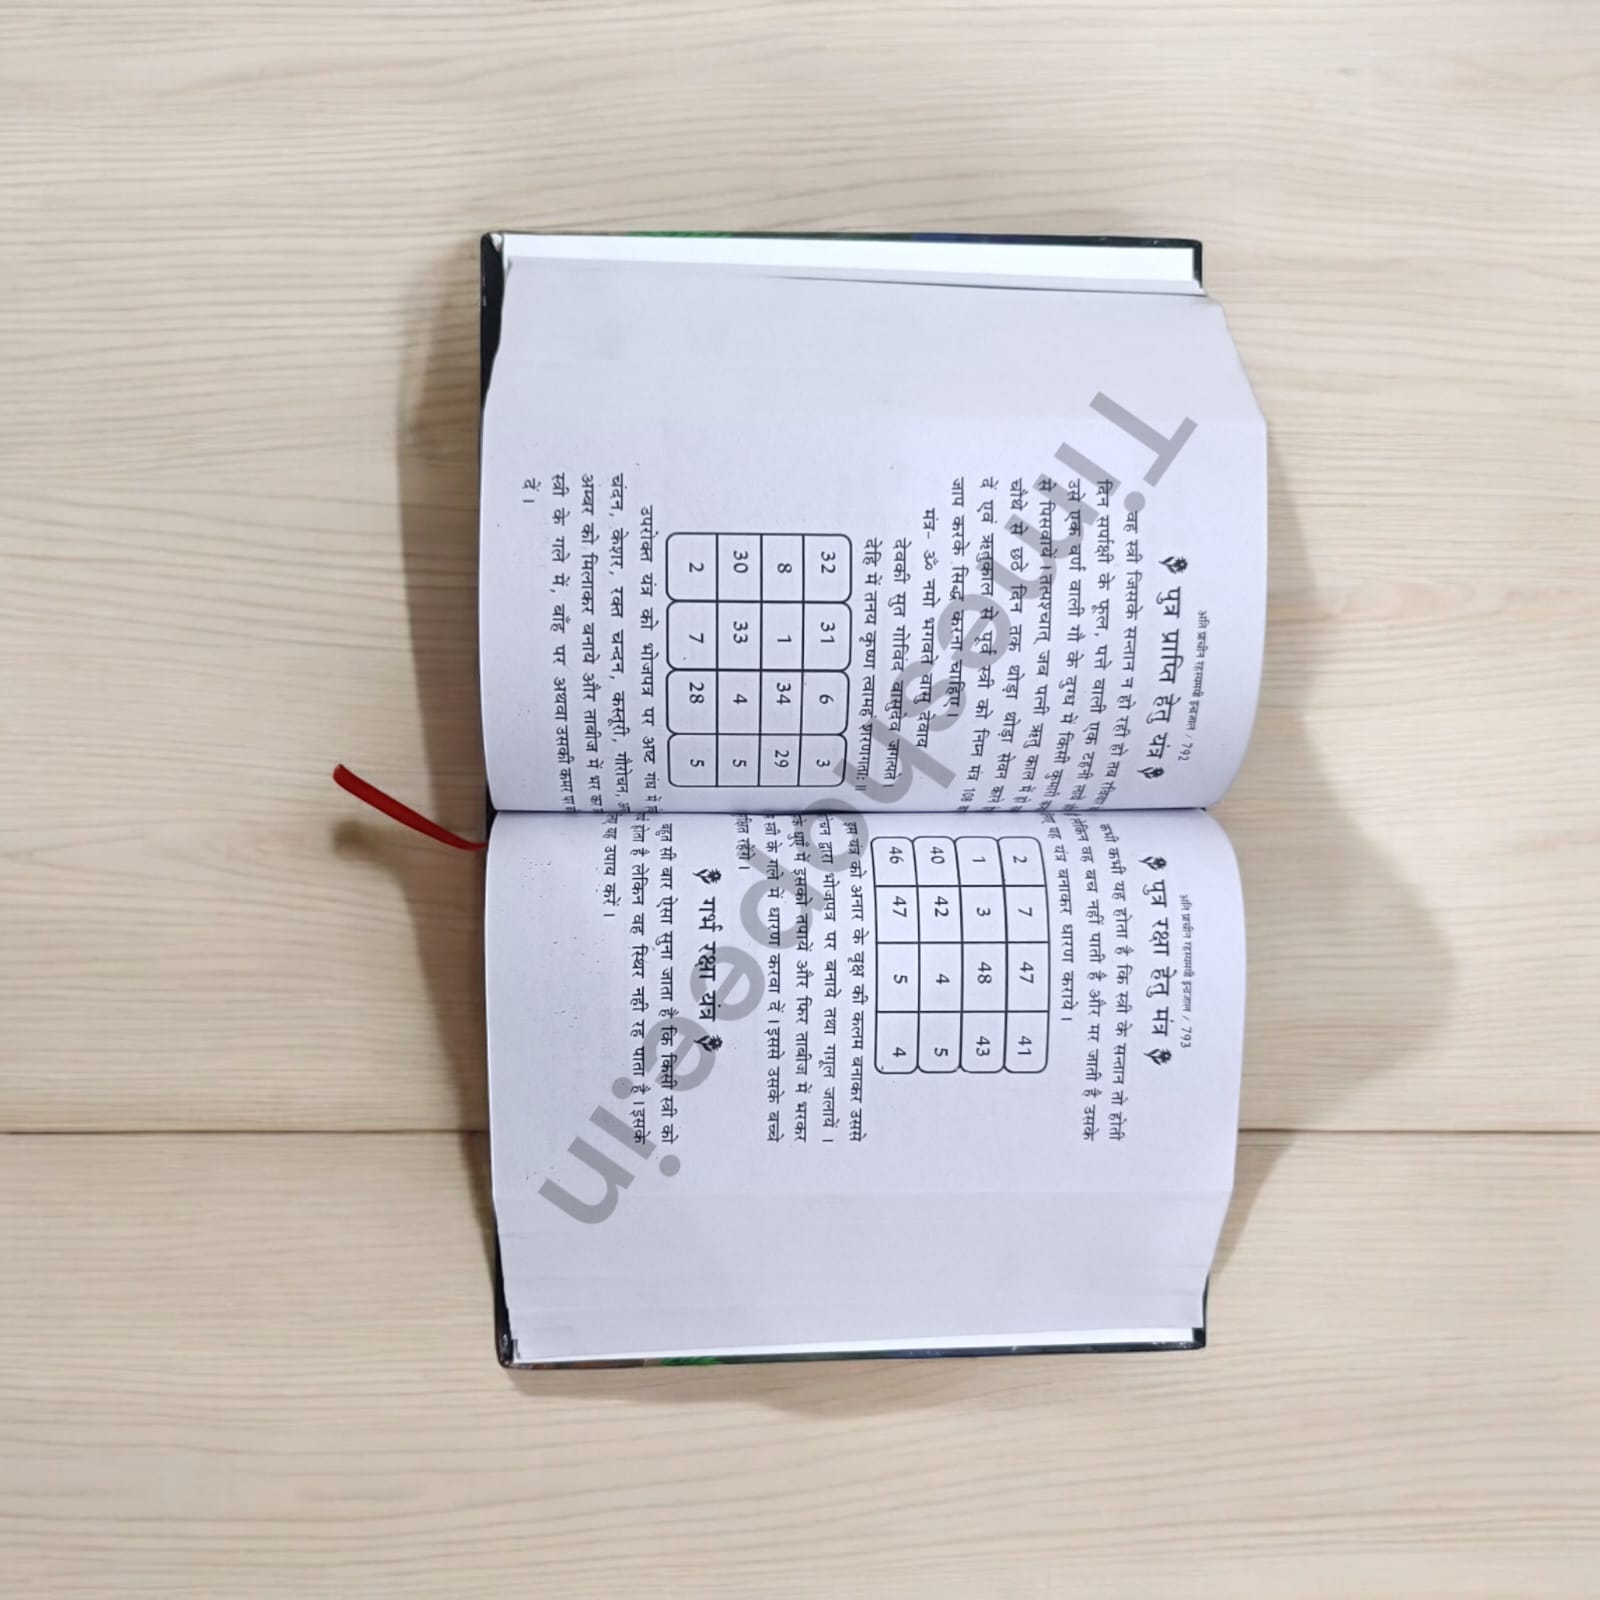 अति प्राचीन रहस्यमयी इन्द्रजाल / 792
पुत्र प्राप्ति हेतु यंत्र
वह स्त्री जिसके सन्तान न हो रही हो तब रविवार
दिन सर्पाक्षी के फूल, पत्ते वाली एक टहनी लाये
उसे एक वर्ण वाली गौ के दुग्ध में किसी कुमारी
से पिसवाये। तत्पश्चात् जब पत्नी ऋतु काल में हो
चौथे से छठे दिन तक थोड़ा थोड़ा सेवन करने
दें एवं ऋतुकाल से पूर्व स्त्री को निम्न मंत्र 108
जाप करके सिद्ध करना चाहिए
मंत्र- ॐ नमो भगवते वासु देवाय
देवकी सुत गोविंद वासुदेव जगत्पते।
देहि में तनय कृष्ण त्वामहं शरणगताः॥
32 31 6 3
8 1 34 29
30 33 4 5
2 7 28 5
उपरोक्त यंत्र को भोजपत्र पर अष्ट गंध में
चंदन, केशर, रक्त चन्दन, कस्तूरी, गौरोचन,
अम्बर को मिलाकर बनाये और ताबीज में भर कर
स्त्री के गले में, बाँह पर अथवा उसकी कमर पर
दें।
अति प्राचीन रहस्यमयी इन्द्रजाल / 793
पुत्र रक्षा हेतु मंत्र
कभी कभी यह होता है कि स्त्री के सन्तान तो होती
लेकिन वह बच नहीं पाती है और मर जाती है उसके
यह यंत्र बनाकर धारण कराये।
2 7 47 41
1 3 48 43
40 42 4 5
46 47 5 4
इस यंत्र को अनार के वृक्ष की कलम बनाकर उससे
द्वारा भोजपत्र पर बनाये तथा गूगूल जलायें।
के धुएँ में इसको तपायें और फिर ताबीज में भरकर
स्त्री के गले में धारण करवा दें। इससे उसके बच्चे
रहेंगे।
गर्भ रक्षा यंत्र
बहुत सी बार ऐसा सुना जाता है कि किसी स्त्री को
होता है लेकिन वह स्थिर नही रह पाता है। इसके
यह उपाय करें।
Timeshopee.in